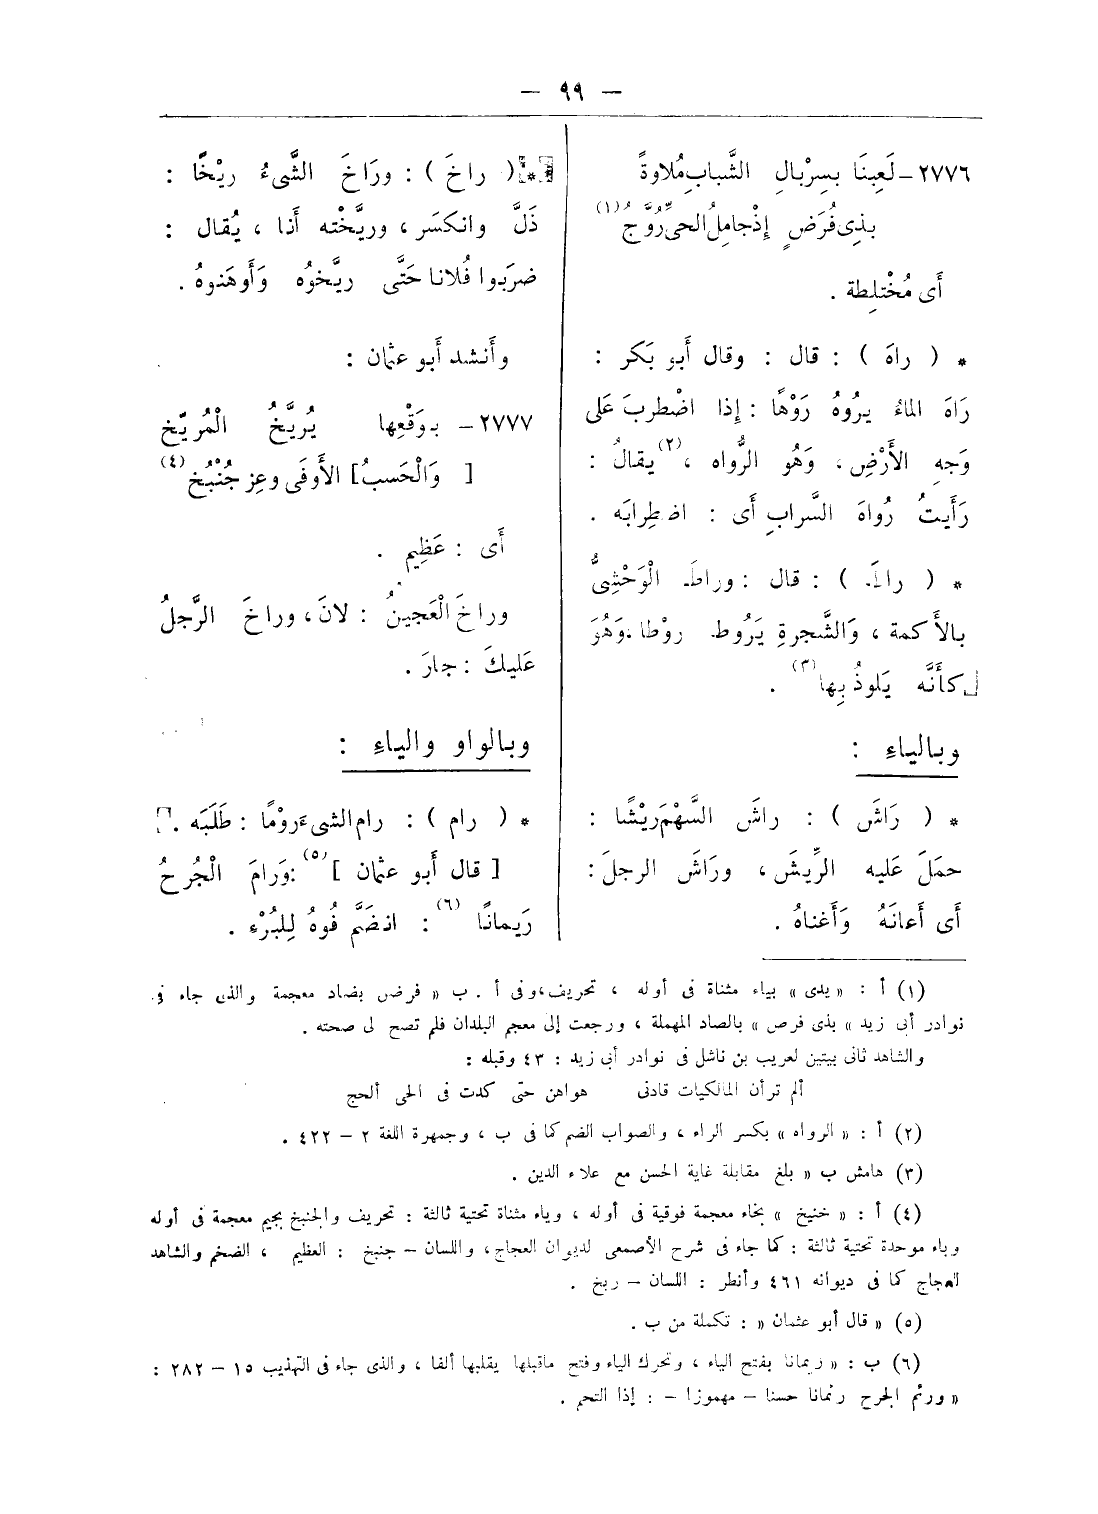 — ٩٩ —
٢٧٧٦ - لَعِبنَا بِسِرْبالِ الشَّبابِ مُلاوةً
بِذِى فُرَضٍ إِذْ جامِلُ الحىِّ رُوَّجُ (١)
أَى مُخْتلِطة .
* ( راهَ ) : قال : وقال أَبو بَكر :
رَاهَ الماءُ يرُوهُ رَوْهًا : إِذا اضْطربَ عَلى
وَجهِ الأَرْضِ، وَهُو الرُّواه (٢)، يقالُ :
رَأَيتُ رُواهَ السَّرابِ أَى : اضطِرابَه .
* ( راطَ ) : قال : وراطَ الْوَحْشِىُّ
بالأَكمة ، وَالشَّجرةِ يَرُوط روْطا، وَهُوَ
كأَنَّه يَلوذُ بِها (٣) .
وبالياءِ :
* ( رَاشَ ) : راشَ السَّهْمَ رَيْشًا :
حمَلَ عَليه الرِّيشَ ، ورَاشَ الرجلَ :
أَى أَعانَهُ وَأَغناهُ .
* ( راخَ ) : ورَاخَ الشَّىءُ ريْخًا :
ذَلَّ وانكسَر ، وريَّخْته أَنا ، يُقال :
ضرَبوا فُلانا حَتَّى ريَّخوُه وَأَوهَنوهُ .
وأَنشد أَبو عثمان :
٢٧٧٧ - بوَقْعِها يُريَّخُ الْمُريَّخ
[ وَالْحَسبُ ] الأَوفَى وعِز جُنْبُخ (٤)
أَى : عَظِيم .
وراخَ الْعَجينُ : لانَ ، وراخَ الرَّجلُ
عَليكَ : جارَ .
وبالواو والياءِ :
* ( رام ) : رام الشىءَ رَوْمًا : طَلَبَه .
[ قال أَبو عثمان ] (٥) : وَرَامَ الْجُرحُ
رَيمانًا (٦) : انضَمَّ فُوهُ لِلبُرْءِ .
(١) أ : « يدى » بياء مثناة فى أوله ، تحريف، وفى أ . ب « فرض بضاد معجمة والذى جاء فى
نوادر أبى زيد « بذى فرص » بالصاد المهملة ، ورجعت إلى معجم البلدان فلم تصح لى صحته .
والشاهد ثانى بيتين لعريب بن ناشل فى نوادر أبى زيد : ٤٣ وقبله :
ألم تر أن المالكيات قادنى هواهن حتى كدت فى الحى ألحج
(٢) أ : « الرواه » بكسر الراء ، والصواب الضم كما فى ب ، وجمهرة اللغة ٢ – ٤٢٢ .
(٣) هامش ب « بلغ مقابلة غاية الحسن مع علاء الدين .
(٤) أ : « خنيخ » بخاء معجمة فوقية فى أوله ، وياء مثناة تحتية ثالثة : تحريف والجنبخ بجيم معجمة فى أوله
وباء موحدة تحتية ثالثة : كما جاء فى شرح الأصمعى لديوان العجاج، واللسان – جنبخ : العظيم ، الضخم والشاهد
العجاج كما فى ديوانه ٤٦١ وأنظر : اللسان – ريخ .
(٥) « قال أبو عثمان » : تكملة من ب .
(٦) ب : « ريمانا بفتح الياء ، وتحرك الياء وفتح ماقبلها يقلبها ألفا ، والذى جاء فى التهذيب ١٥ – ٢٨٢ :
« ورئم الجرح رئمانا حسنا – مهموزا – : إذا التحم .